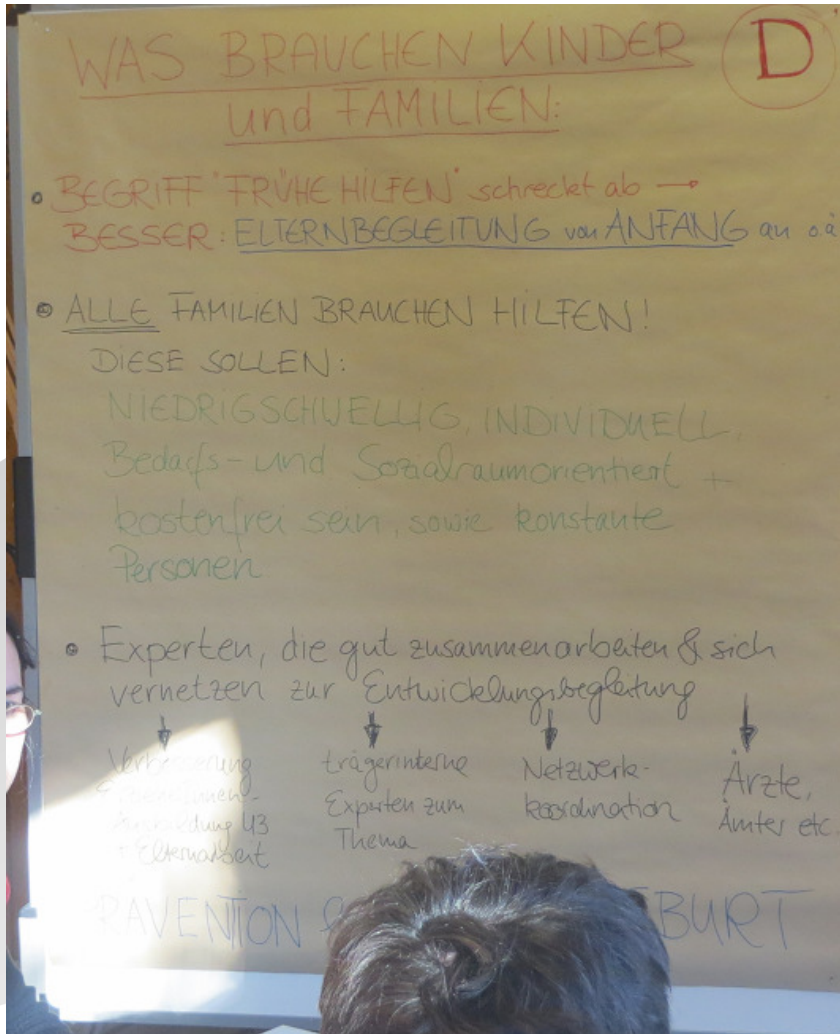 WAS BRAUCHEN KINDER
D
und FAMILIEN:
• BEGRIFF "FRÜHE HILFEN" schreckt ab →
BESSER: ELTERNBEGLEITUNG von ANFANG an o.ä
• ALLE FAMILIEN BRAUCHEN HILFEN!
DIESE SOLLEN:
NIEDRIGSCHWELLIG, INDIVIDUELL,
Bedarfs- und Sozialraumorientiert +
kostenfrei sein, sowie konstante
Personen
• Experten, die gut zusammenarbeiten & sich
vernetzen zur Entwicklungsbegleitung
Verbesserung
Ausbildung U3
+ Elternarbeit
trägerinterne
Experten zum
Thema
Netzwerk-
koordination
Ärzte,
Ämter etc.
RÄVENTION
EBURT